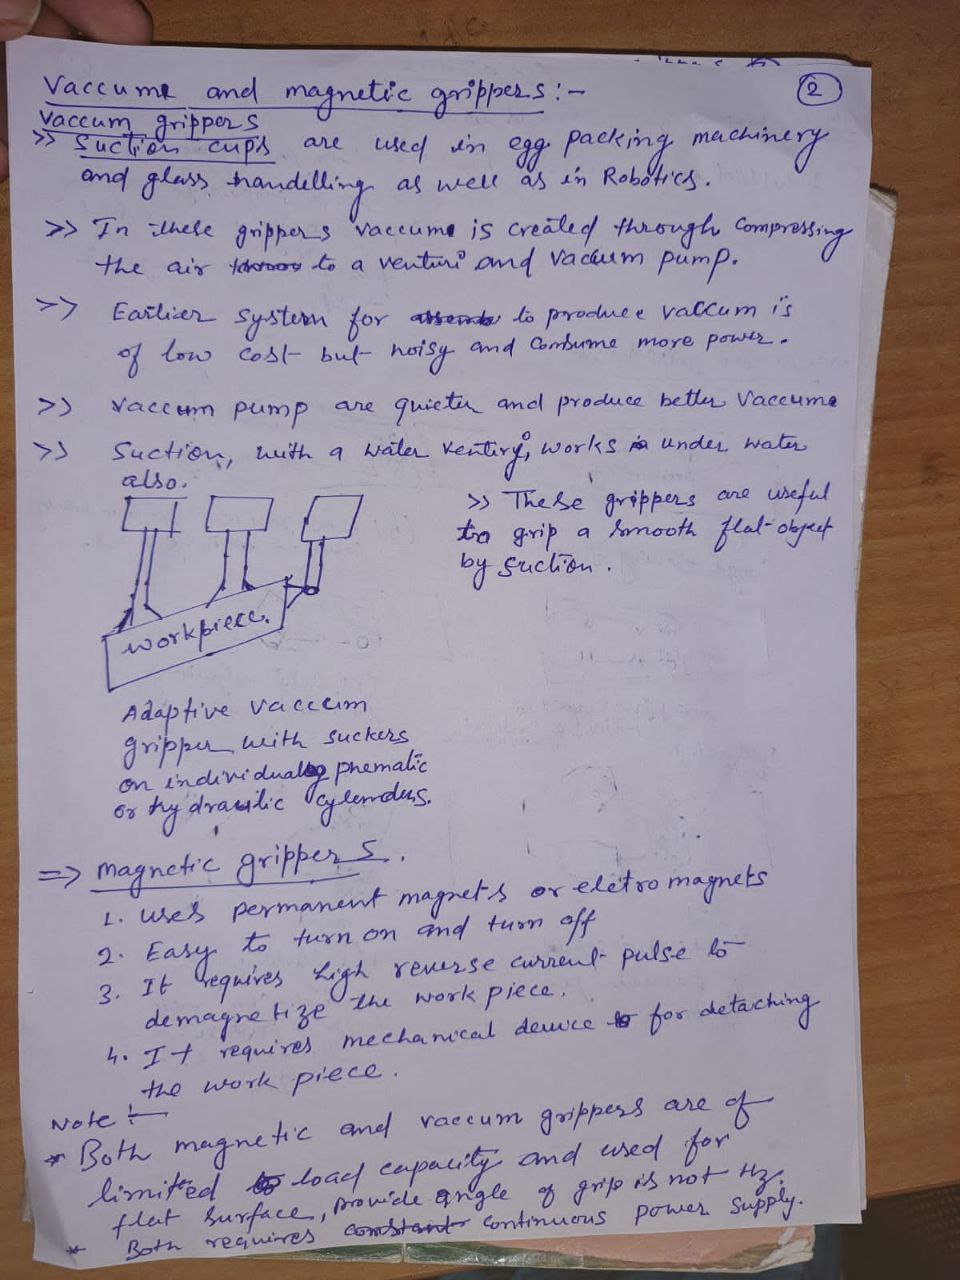 2
Vaccume and magnetic grippers :-
Vaccum grippers
>> Suction cups are used in egg packing machinery
and glass handelling as well as in Robotics.
>> In these grippers vaccume is created through compressing
the air to a venturi and vaccum pump.
>> Earlier system for to produce vaccum is
of low cost but noisy and consume more power.
>> Vaccum pump are quieter and produce better vaccume
>> Suction, with a water ventury, works under water
also.
>> These grippers are useful
to grip a smooth flat object
by suction.
workpiece.
Adaptive vaccum
gripper with suckers
on individual phematic
or hydraulic cylenders.
=> Magnetic grippers.
1. uses permanent magnets or eletro magnets
2. Easy to turn on and turn off
3. It requires high reverse current pulse to
demagnetize the work piece.
4. It requires mechanical device for detaching
the work piece.
Note :-
* Both magnetic and vaccum grippers are of
limited load capacity and used for
flat surface, provide angle of grip is not Hz.
* Both requires continuous power supply.